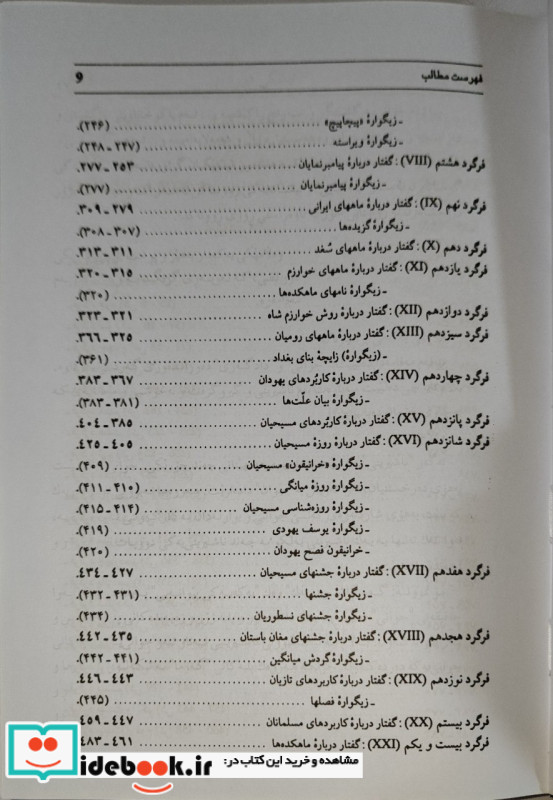 فهرست مطالب 9
ـ زیگوارهٔ «پیچاپیچ» (۲۴۶).
ـ زیگوارهٔ ویراسته (۲۴۷ ـ ۲۴۸).
فرگرد هشتم (VIII) : گفتار دربارهٔ پیامبرنمایان ۲۵۳ ـ ۲۷۷.
ـ زیگوارهٔ پیامبرنمایان (۲۷۷).
فرگرد نهم (IX) : گفتار دربارهٔ ماههای ایرانی ۲۷۹ ـ ۳۰۹.
ـ زیگوارهٔ گزیده‌ها (۳۰۷ ـ ۳۰۸).
فرگرد دهم (X) : گفتار دربارهٔ ماههای سُغد ۳۱۱ ـ ۳۱۳.
فرگرد یازدهم (XI) : گفتار دربارهٔ ماههای خوارزم ۳۱۵ ـ ۳۲۰.
ـ زیگوارهٔ نامهای ماهکده‌ها (۳۲۰).
فرگرد دوازدهم (XII) : گفتار دربارهٔ روش خوارزم شاه ۳۲۱ ـ ۳۲۳.
فرگرد سیزدهم (XIII) : گفتار دربارهٔ ماههای رومیان ۳۲۵ ـ ۳۶۶.
ـ (زیگوارهٔ) زایچهٔ بنای بغداد (۳۶۱).
فرگرد چهاردهم (XIV) : گفتار دربارهٔ کاربُردهای یهودان ۳۶۷ ـ ۳۸۳.
ـ زیگوارهٔ بیان علّت‌ها (۳۸۱ ـ ۳۸۳).
فرگرد پانزدهم (XV) : گفتار دربارهٔ کاربُردهای مسیحیان ۳۸۵ ـ ۴۰۴.
فرگرد شانزدهم (XVI) : گفتار دربارهٔ روزهٔ مسیحیان ۴۰۵ ـ ۴۲۵.
ـ زیگوارهٔ «خرانیقون» مسیحیان (۴۰۹).
ـ زیگوارهٔ روزهٔ میانگی (۴۱۰ ـ ۴۱۱).
ـ زیگوارهٔ روزه‌شناسی مسیحیان (۴۱۴ ـ ۴۱۵).
ـ زیگوارهٔ یوسف یهودی (۴۱۹).
ـ خرانیقون فصح یهودان (۴۲۰).
فرگرد هفدهم (XVII) : گفتار دربارهٔ جشنهای مسیحیان ۴۲۷ ـ ۴۳۴.
ـ زیگوارهٔ جشنها (۴۳۱ ـ ۴۳۲).
ـ زیگوارهٔ جشنهای نسطوریان (۴۳۴).
فرگرد هجدهم (XVIII) : گفتار دربارهٔ جشنهای مغان باستان ۴۳۵ ـ ۴۴۲.
ـ زیگوارهٔ گردش میانگین (۴۴۱ ـ ۴۴۲).
فرگرد نوزدهم (XIX) : گفتار دربارهٔ کاربردهای تازیان ۴۴۳ ـ ۴۴۶.
ـ زیگوارهٔ فصلها (۴۴۵).
فرگرد بیستم (XX) : گفتار دربارهٔ کاربردهای مسلمانان ۴۴۷ ـ ۴۵۹.
فرگرد بیست و یکم (XXI) : گفتار دربارهٔ ماهکده‌ها ۴۶۱ ـ ۴۸۳.
مشاهده و خرید این کتاب در:
idebook.ir